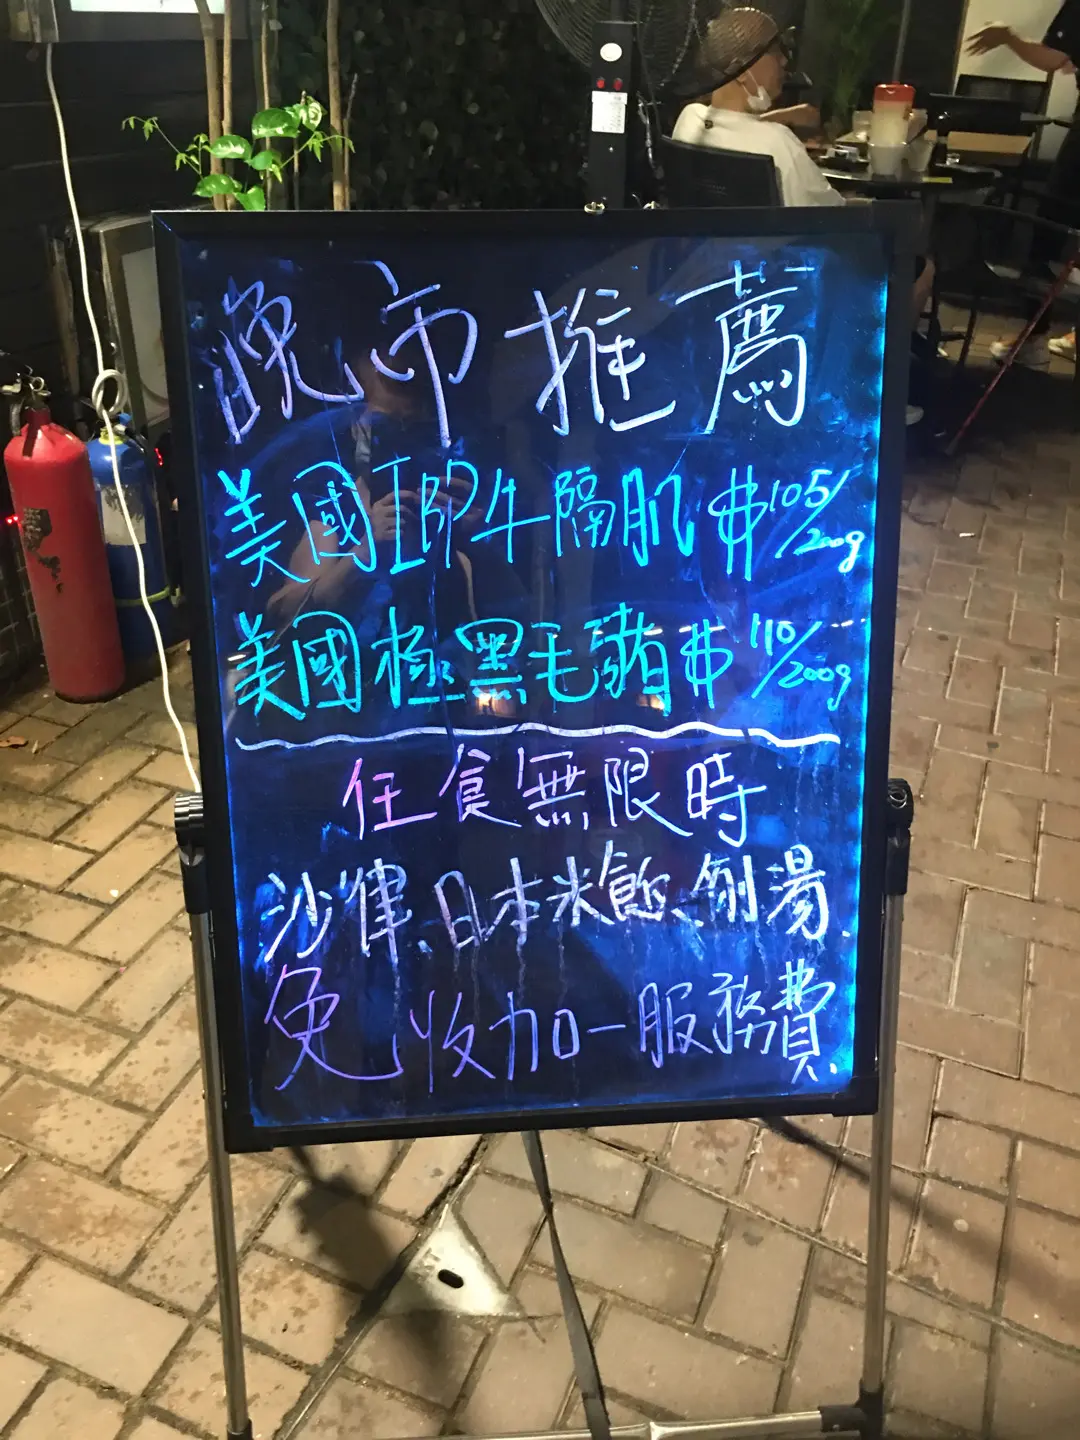 晚市推薦
美國IBP牛隔肌 $105/200g
美國極黑毛豬 $110/200g
任食無限時
沙律、日本米飯、例湯.
免收加一服務費.